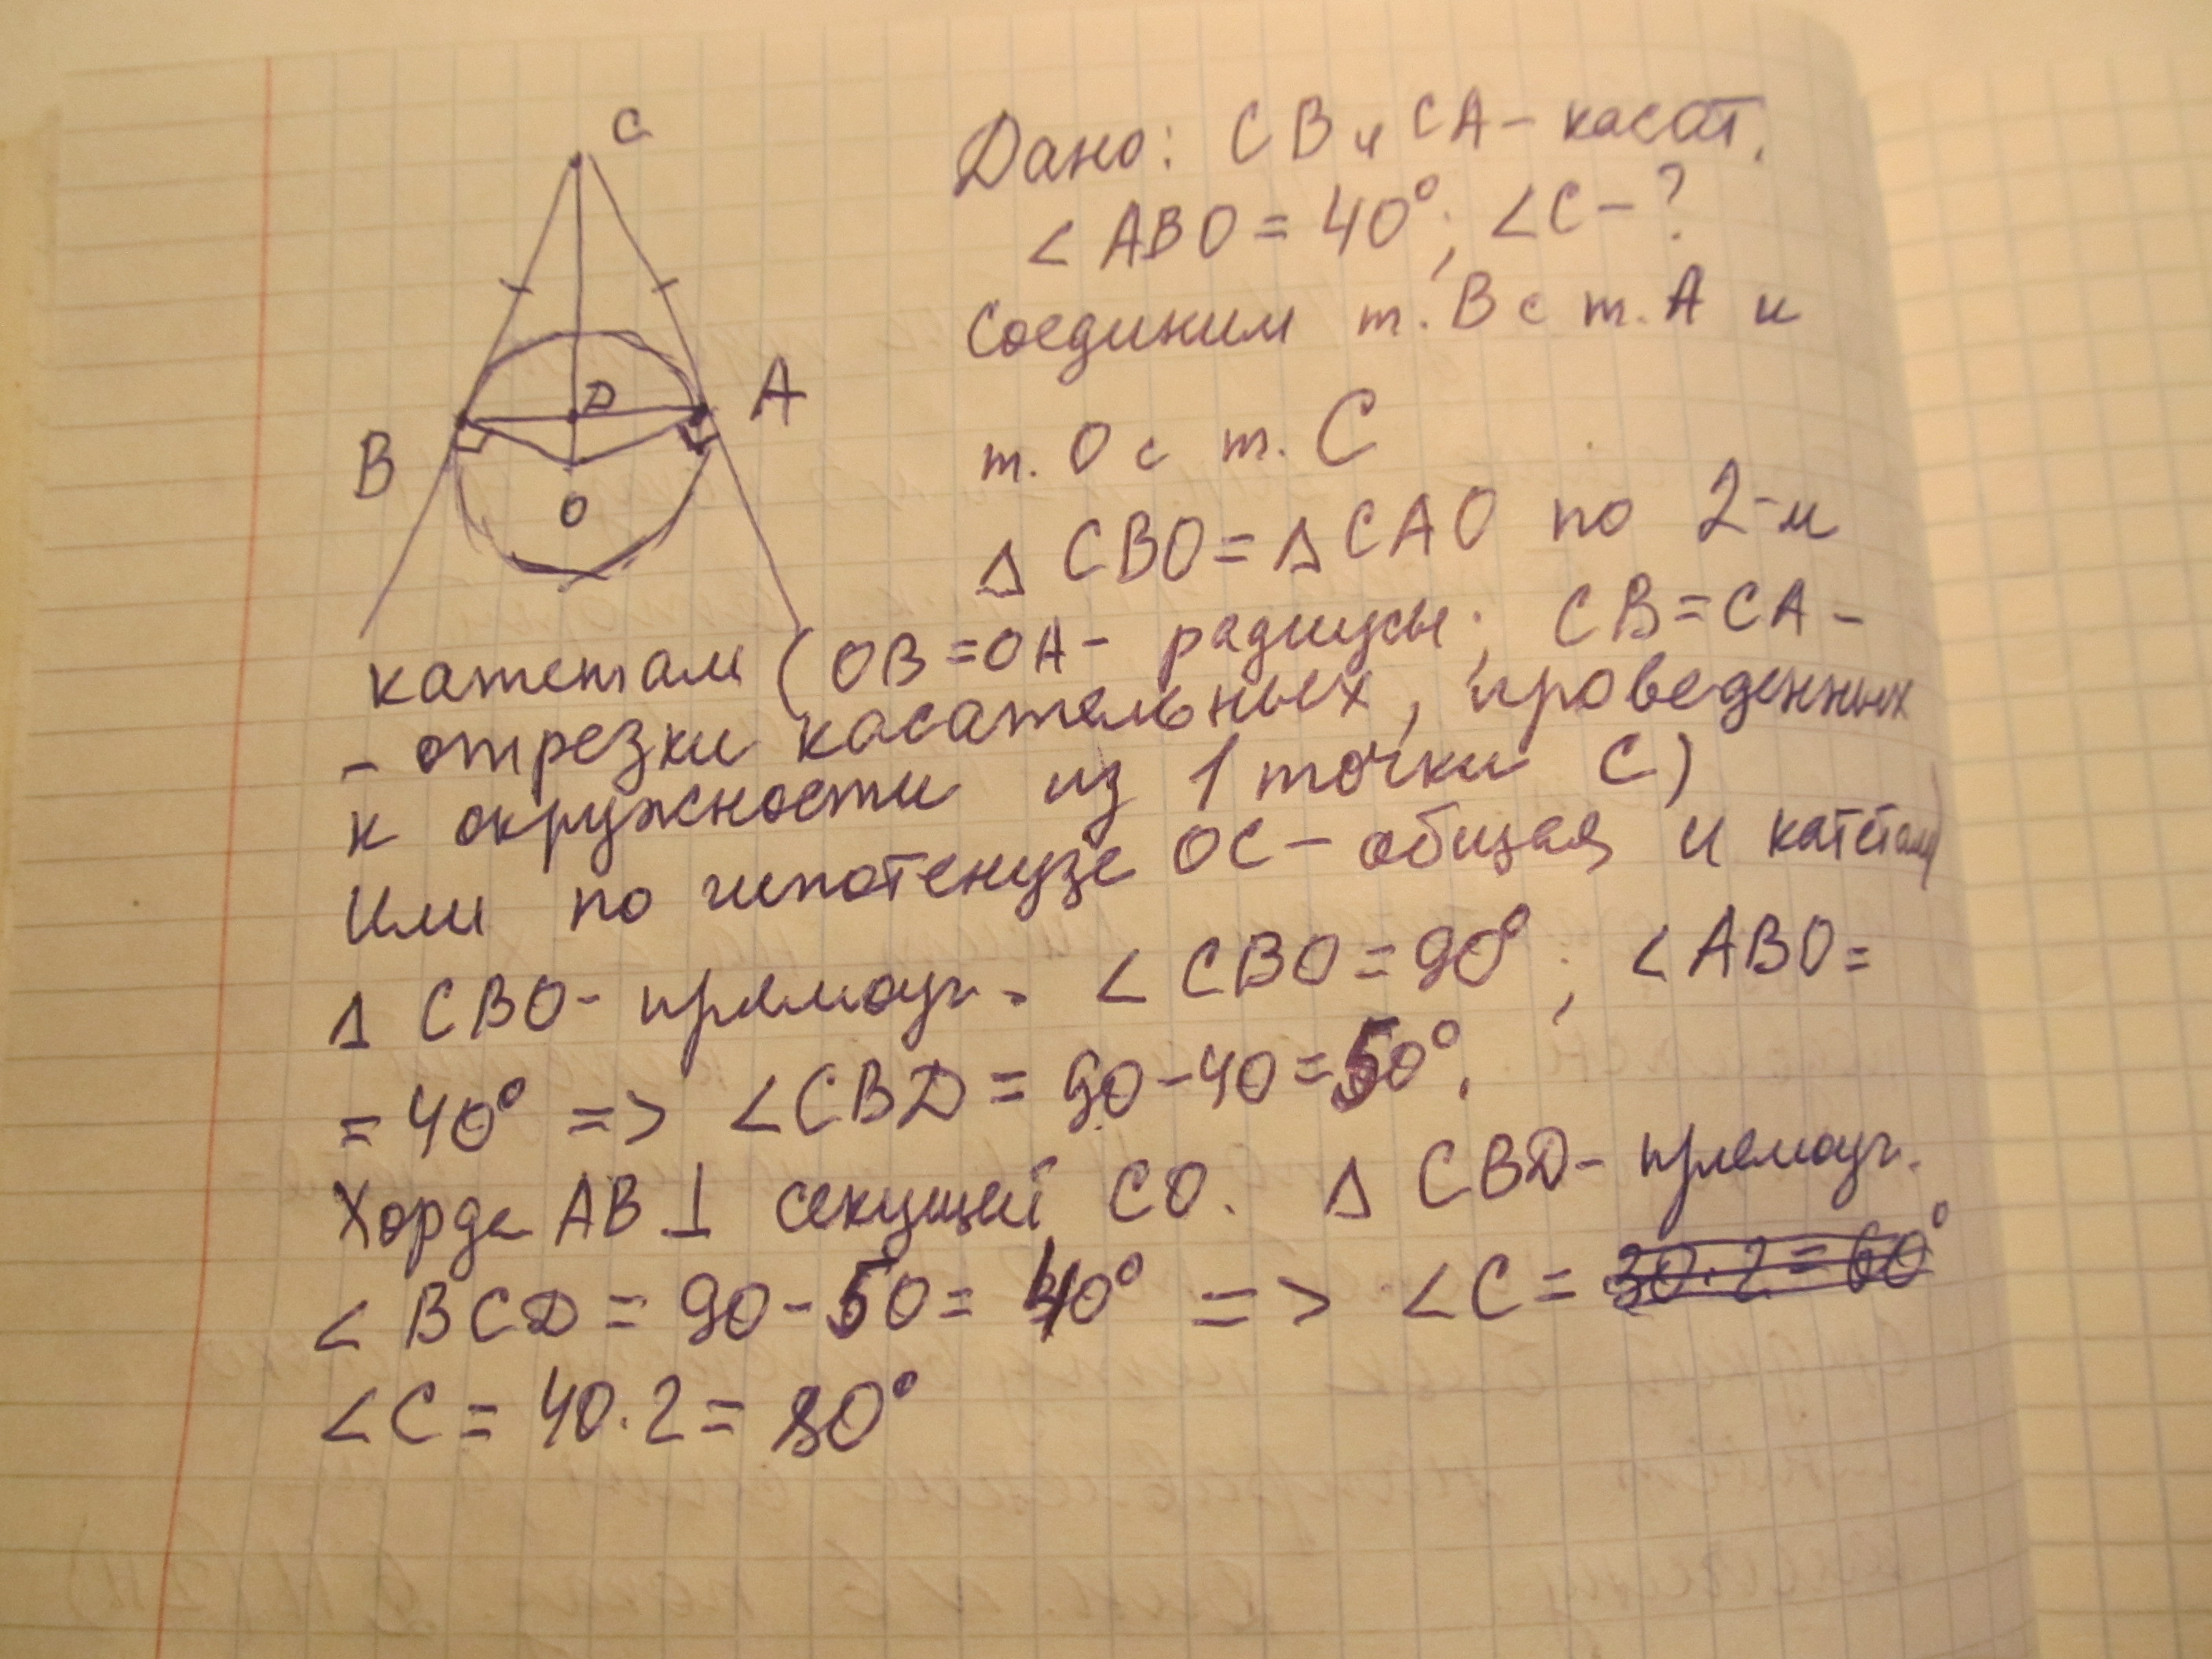 C
D
A
B
O
Дано: CB и CA - касат.
∠ABO = 40°; ∠C - ?
Соединим т. B с т. A и
т. O с т. C
Δ CBO = Δ CAO по 2-м
катетам (OB = OA - радиусы; CB = CA -
- отрезки касательных, проведенных
к окружности из 1 точки C)
Или по гипотенузе OC - общая и катетам)
Δ CBO - прямоуг. ∠CBO = 90°; ∠ABO =
= 40° => ∠CBD = 90 - 40 = 50°.
Хорда AB ⊥ секущей CO. Δ CBD - прямоуг.
∠BCD = 90 - 50 = 40° => ∠C = 30·2 = 60°
∠C = 40·2 = 80°